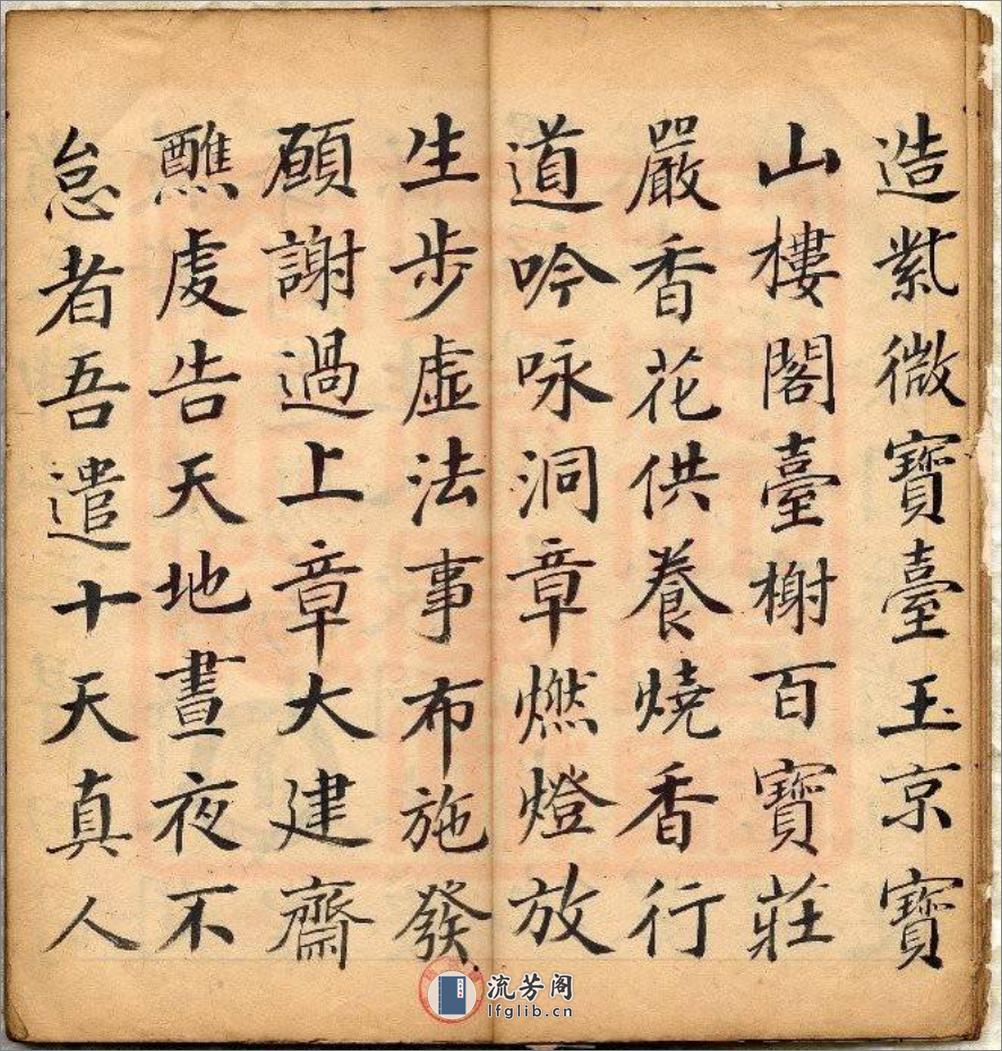 造紫微寶臺玉京寶
山樓閣臺榭百寶莊
嚴香花供養燒香行
道吟咏洞章燃燈放
生步虛法事布施發
願謝過上章大建齋
醮虔告天地晝夜不
怠者吾遣十天真人
流芳阁
lfglib.cn